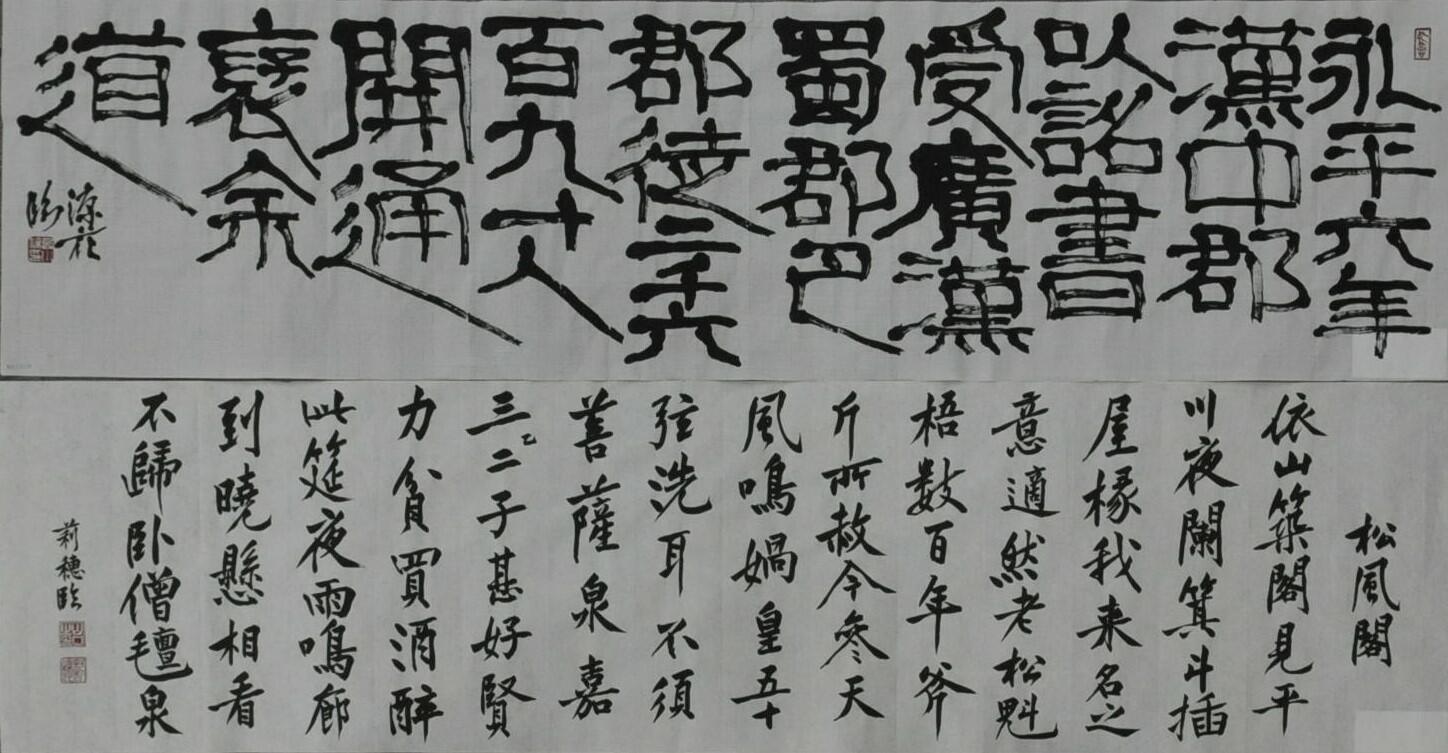 永平六年
漢中郡
以詔書
受廣漢
蜀郡巴
郡徒二千六
百九十人
開通
褒余
道
臨
松風閣
依山築閣見平
川夜闌箕斗插
屋椽我来名之
意適然老松魁
梧數百年斧
斤所赦今參天
風鳴媧皇五十
弦洗耳不須
菩薩泉嘉
三二子甚好賢
力貧買酒醉
此筵夜雨鳴廊
到曉懸相看
不歸臥僧氈泉
莉穗臨